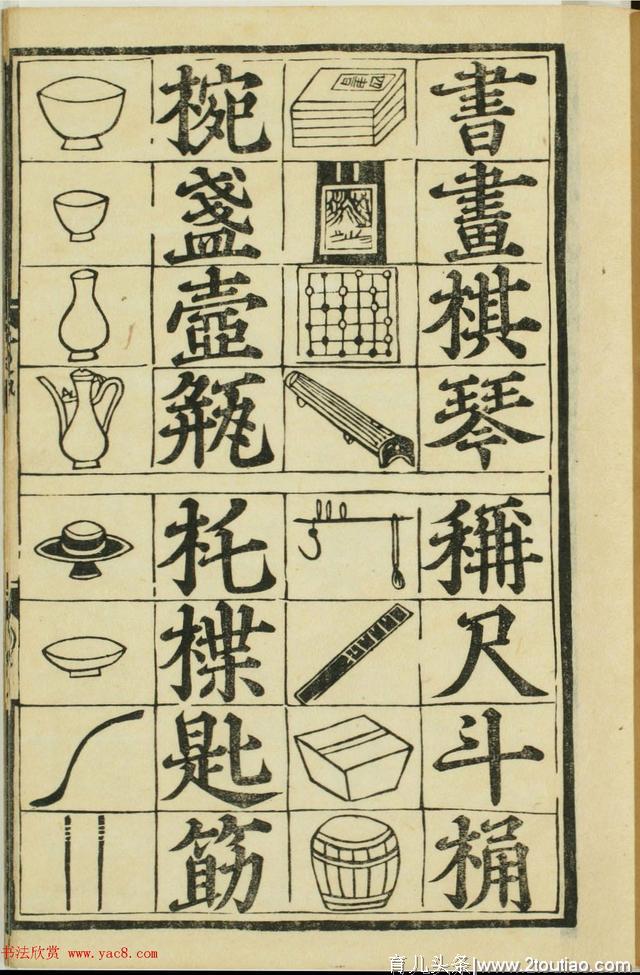 書畫棋琴
稱尺斗桶
四書
椀盞壺瓶
杔楪匙筯
书法欣赏 www.yac8.com
育儿头条|www.2toutiao.com